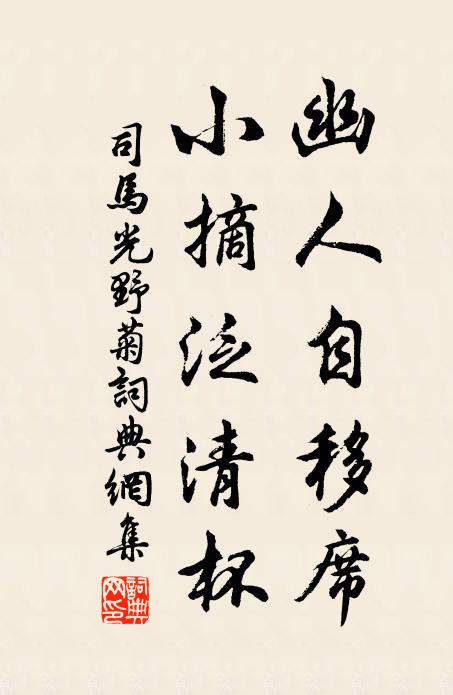 幽人自移席
小摘泛清杯
司馬光野菊詞典網集
詞典网印